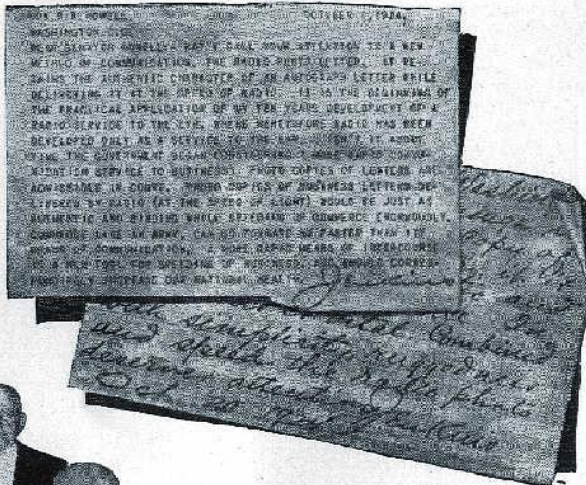 HON R.B. HOWELL OCTOBER 1, 1924,
WASHINGTON D.C.
DEAR SENATOR HOWELL: MAY I CALL YOUR ATTENTION TO A NEW
METHOD OF COMMUNICATION, THE RADIO PHOTO LETTER. IT RE-
TAINS THE AUTHENTIC CHARACTER OF AN AUTOGRAPH LETTER WHILE
DELIVERING IT AT THE SPEED OF RADIO. IT IS THE BEGINNING OF
THE PRACTICAL APPLICATION OF MY TEN YEARS DEVELOPMENT OF A
RADIO SERVICE TO THE EYE, WHERE HERETOFORE RADIO HAS BEEN
DEVELOPED ONLY AS A SERVICE TO THE EAR. ISN'T IT ABOUT
TIME THE GOVERNMENT BEGAN CONSIDERING A MORE RAPID COMMU-
NICATION SERVICE TO BUSINESS? PHOTO COPIES OF LETTERS ARE
ADMISSIBLE IN COURT. PHOTO COPIES OF BUSINESS LETTERS DE-
LIVERED BY RADIO (AT THE SPEED OF LIGHT) WOULD BE JUST AS
AUTHENTIC AND BINDING WHILE SPEEDING UP COMMERCE ENORMOUSLY.
COMMERCE LIKE AN ARMY, CAN GO FORWARD NO FASTER THAN ITS
MEANS OF COMMUNICATION. A MORE RAPID MEANS OF INTERCOURSE
IS A NEW TOOL FOR SPEEDING UP BUSINESS, AND SHOULD CORRES-
PONDINGLY INCREASE OUR NATIONAL WEALTH.
combined
with simplicity, ruggedness,
and speed the radio photo
deserve attention